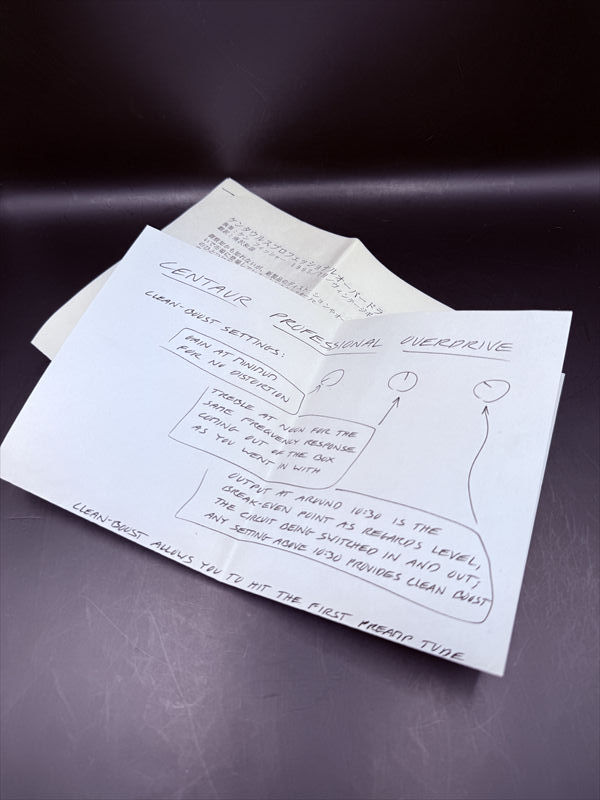 ケンタウルスプロフェッショナルオーバードラ
CENTAUR PROFESSIONAL OVERDRIVE
CLEAN-BOOST SETTINGS:
GAIN AT MINIMUM
FOR NO DISTORTION
TREBLE AT NOON FOR THE
SAME FREQUENCY RESPONSE
COMING OUT OF THE BOX
AS YOU WENT IN WITH
OUTPUT AT AROUND 10:30 IS THE
BREAK-EVEN POINT AS REGARDS LEVEL,
THE CIRCUIT BEING SWITCHED IN AND OUT;
ANY SETTING ABOVE 10:30 PROVIDES CLEAN BOOST
CLEAN-BOOST ALLOWS YOU TO HIT THE FIRST PREAMP TUBE